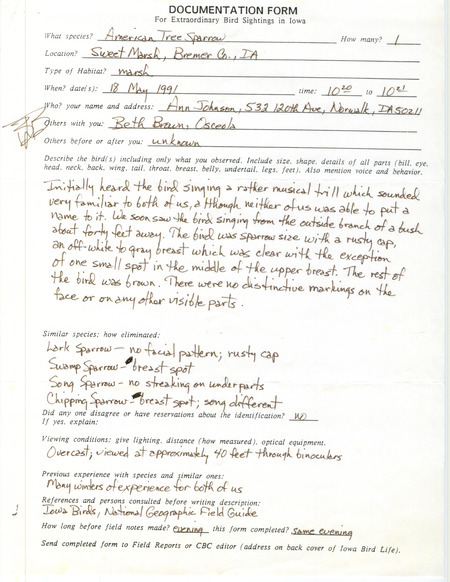 DOCUMENTATION FORM
For Extraordinary Bird Sightings in Iowa
What species? American Tree Sparrow How many? 1
Location? Sweet Marsh, Bremer Co., IA
Type of Habitat? marsh
When? date(s): 18 May 1991 time: 10 20 to 10 21
Who? your name and address: Ann Johnson, 532 120th Ave, Norwalk, IA 50211
Others with you: Beth Brown, Osceola
Others before or after you: unknown
Describe the bird(s) including only what you observed. Include size, shape, details of all parts (bill, eye,
head, neck, back, wing, tail, throat, breast, belly, undertail, legs, feet). Also mention voice and behavior.
Initially heard the bird singing a rather musical trill which sounded
very familiar to both of us, although neither of us was able to put a
name to it. We soon saw the bird singing from the outside branch of a bush
about forty feet away. The bird was sparrow size with a rusty cap,
an off-white to gray breast which was clear with the exception
of one small spot in the middle of the upper breast. The rest of
the bird was brown. There were no distinctive markings on the
face or on any other visible parts.
Similar species; how eliminated:
Lark Sparrow — no facial pattern; rusty cap
Swamp Sparrow - breast spot
Song Sparrow - no streaking on underparts
Chipping Sparrow - breast spot; song different
Did any one disagree or have reservations about the identification? no
If yes, explain:
Viewing conditions: give lighting, distance (how measured), optical equipment.
Overcast; viewed at approximately 40 feet through binoculars
Previous experience with species and similar ones:
Many winters of experience for both of us
References and persons consulted before writing description:
Iowa Birds, National Geographic Field Guide
How long before field notes made? evening this form completed? same evening
Send completed form to Field Reports or CBC editor (address on back cover of Iowa Bird Life).